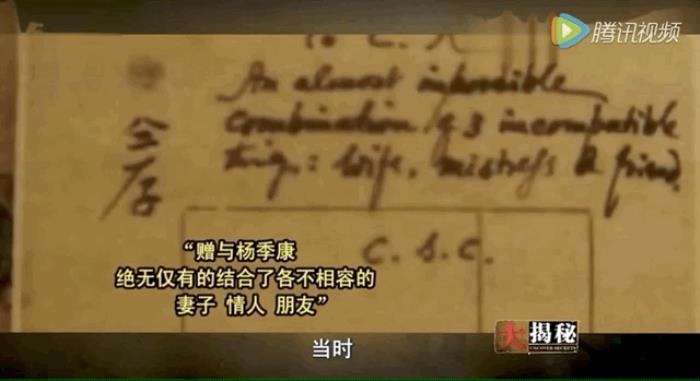 腾讯视频
To C. K
An almost impossible
combination of 3 incompatible
things: wife, mistress & friend.
C. S. C.
“赠与杨季康
绝无仅有的结合了各不相容的
妻子 情人 朋友”
当时
大揭秘
UNCOVER SECRETS